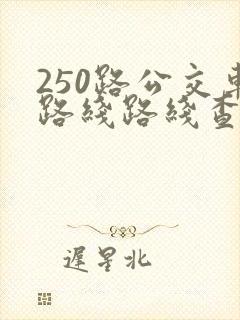 250路公交車
路綫路綫查
遲星北